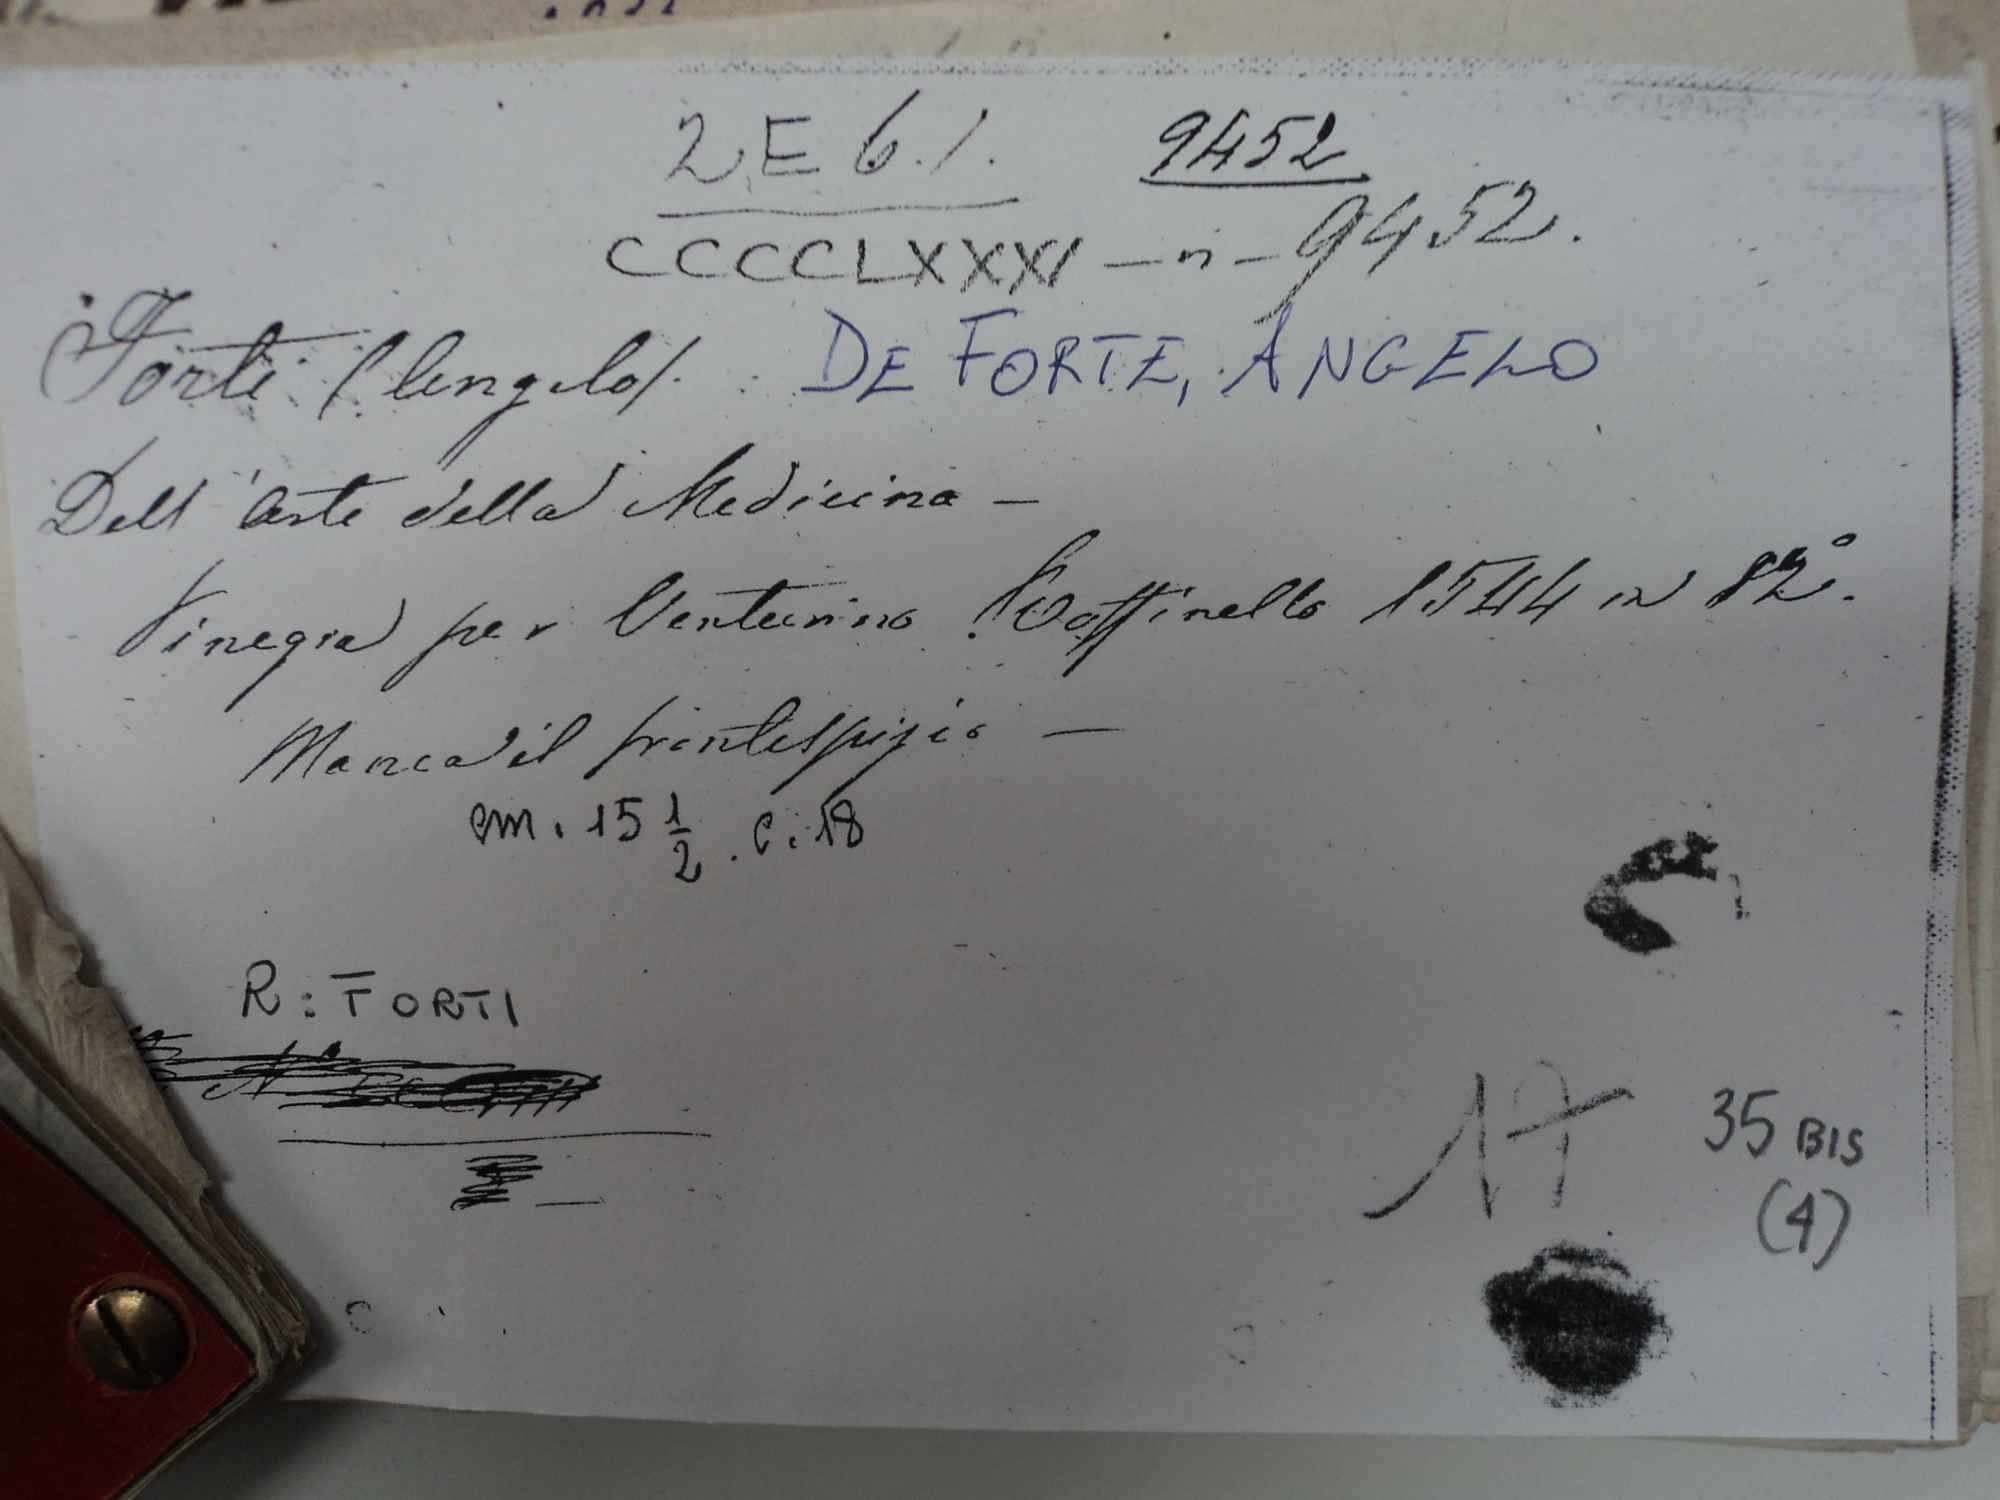 2 E 6. 1.
9452
CCCCCLXXXI - n - 9452.
Forti (Angelo). DE FORTE, ANGELO
Dell'arte della Medicina -
Vinegia per Venturino Roffinello 1544 in 12°.
Manca il frontespizio -
cm. 15 1/2 . c. 18
R: FORTI
17
35 BIS
(4)